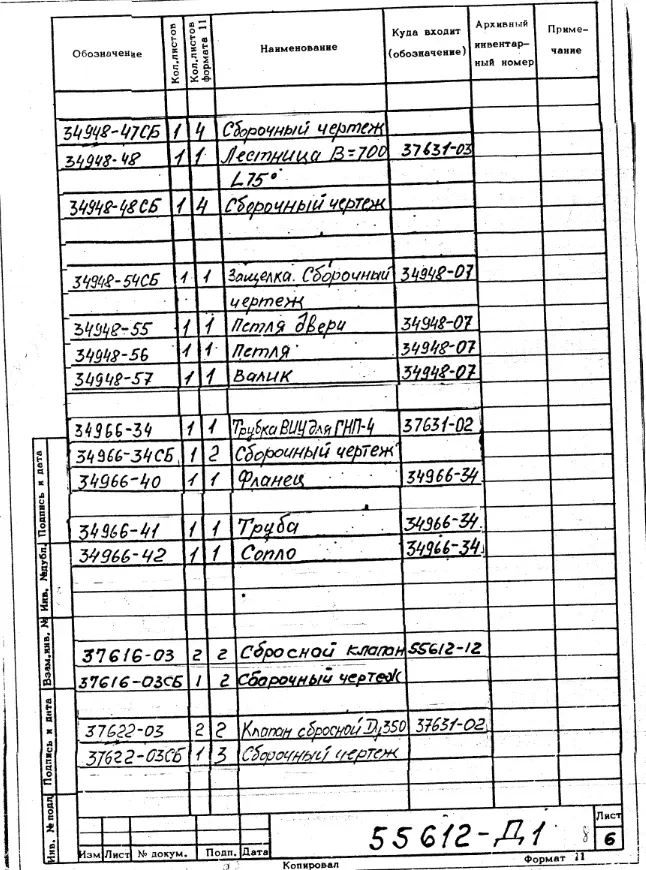 Обозначение Кол.листов Кол.листов формата 11 Наименование Куда входит (обозначение) Архивный инвентарный номер Примечание
34948-47СБ 1 4 Сборочный чертеж
34948-48 1 1 Лестница В=700 37631-03
∠75°
34948-48СБ 1 4 Сборочный чертеж
34948-54СБ 1 1 Защелка. Сборочный 34948-07
чертеж
34948-55 1 1 Петля двери 34948-07
34948-56 1 1 Петля 34948-07
34948-57 1 1 Валик 34948-07
34966-34 1 1 Трубка ВИЦ для ГНП-4 37631-02
34966-34СБ 1 2 Сборочный чертеж
34966-40 1 1 Фланец 34966-34
34966-41 1 1 Труба 34966-34
34966-42 1 1 Сопло 34966-34
37616-03 2 2 Сбросной клапан 55612-12
37616-03СБ 1 2 Сборочный чертеж
37622-03 2 2 Клапан сбросной Ду350 37631-02
37622-03СБ 1 3 Сборочный чертеж
Инв. № подл Подпись и дата Взам.инв. № Инв. №дубл. Подпись и дата
55612-Д1 8
Лист
6
Изм Лист № докум. Подп. Дата
Копировал Формат 11